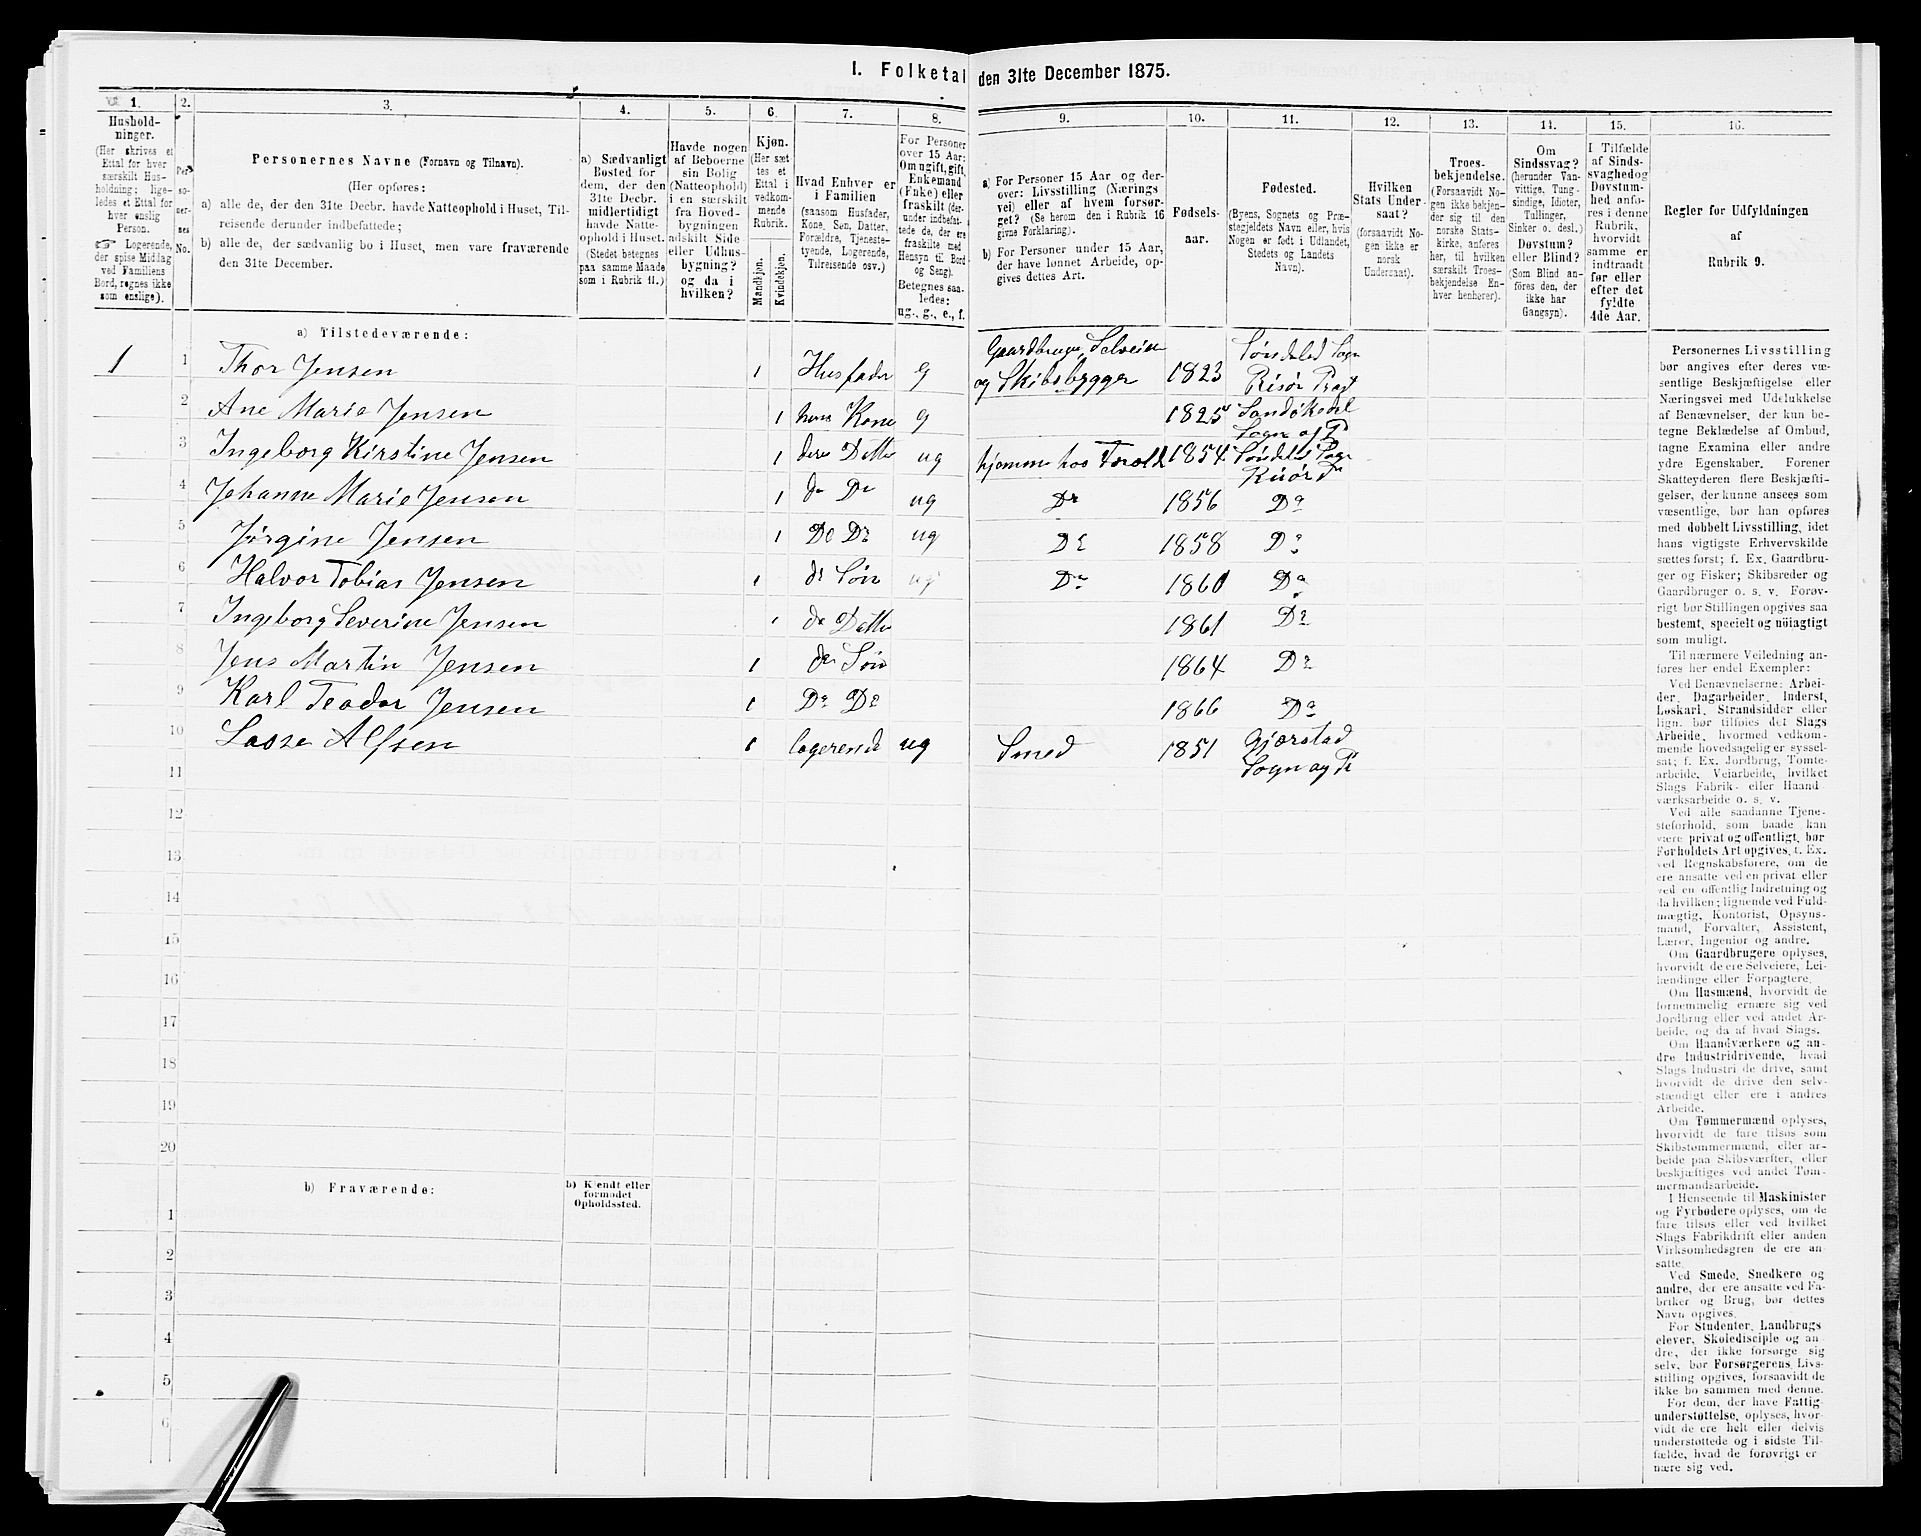 I. Folketal den 31te December 1875.
1. 2. 3. 4. 5. 6. 7. 8. 9. 10. 11. 12. 13. 14. 15. 16.
Hushold-
ninger.
(Her skrives et
Ettal for hver
særskilt Hus-
holdning; lige-
ledes et Ettal for
hver enslig
Person.
☞ Logerende,
der spise Middag
ved Familiens
Bord, regnes ikke
som enslige).
Per-
so-
ner-
nes
No.
Personernes Navne (Fornavn og Tilnavn).
(Her opføres:
a) alle de, der den 31te Decbr. havde Natteophold i Huset, Til-
reisende derunder indbefattede;
b) alle de, der sædvanlig bo i Huset, men vare fraværende
den 31te December.
a) Sædvanligt
Bosted for
dem, der den
31te Decbr.
midlertidigt
havde Natte-
ophold i Huset.
(Stedet betegnes
paa samme Maade
som i Rubrik 11.)
Havde nogen
af Beboerne
sin Bolig
(Natteophold)
i en særskilt
fra Hoved-
bygningen
adskilt Side-
eller Udhus-
bygning?
og da i
hvilken?
Kjøn.
(Her sæt-
tes et
Ettal i
vedkom-
mende
Rubrik.
Mandkjøn.
Kvindekjøn.
Hvad Enhver er
i Familien
(saasom Husfader,
Kone, Søn, Datter,
Forældre, Tjeneste-
tyende, Logerende,
Tilreisende osv.)
For Personer
over 15 Aar:
Om ugift, gift,
Enkemand
(Enke) eller
fraskilt (der-
under indbefat-
tede de, der ere
fraskilte med
Hensyn til Bord
og Seng).
Betegnes saa-
ledes:
ug., g., e., f.
a) For Personer 15 Aar og der-
over: Livsstilling (Nærings
vei) eller af hvem forsør-
get? (Se herom den i Rubrik 16
givne Forklaring).
b) For Personer under 15 Aar,
der have lønnet Arbeide, op-
gives dettes Art.
Fødsels-
aar.
Fødested.
(Byens, Sognets og Præ-
stegjeldets Navn eller, hvis
Nogen er født i Udlandet,
Stedets og Landets
Navn).
Hvilken
Stats Under-
saat?
(forsaavidt No-
gen ikke er
norsk
Undersaat).
Troes-
bekjendelse.
(Forsaavidt No-
gen ikke bekjen-
der sig til den
norske Stats-
kirke, anføres
her, til hvilken
særskilt Troes-
bekjendelse En-
hver henhører).
Om
Sindssvag?
(herunder Van-
vittige, Tung-
sindige, Idioter,
Tullinger,
Sinker o. desl.)
Døvstum?
eller Blind?
(Som Blind an-
føres den, der
ikke har
Gangsyn).
I Tilfælde
af Sinds-
svaghed og
Døvstum-
hed anfø-
res i denne
Rubrik,
hvorvidt
samme er
indtraadt
før eller
efter det
fyldte
4de Aar.
Regler for Udfyldningen
af
Rubrik 9.
a) Tilstedeværende:
1 1 Thor Jensen 1 Husfader g Gaardbruger, Selveier og Skibsbygger 1823 Søndeled Sogn Risør Præst
2 Ane Marie Jensen 1 hans Kone g 1825 Sandøkedal Sogn og P
3 Ingeborg Kirstine Jensen 1 deres Datter ug hjemme hos Foræld 1854 Søndeled Sogn Risør P
4 Johanne Marie Jensen 1 do Do ug Do 1856 Do
5 Jørgine Jensen 1 Do Do ug Do 1858 Do
6 Halvor Tobias Jensen 1 do Søn ug Do 1860 Do
7 Ingeborg Severine Jensen 1 do Datter 1861 Do
8 Jens Martin Jensen 1 do Søn 1864 Do
9 Karl Teodor Jensen 1 Do Do 1866 Do
10 Lasse Alfsen 1 logerende ug Smed 1851 Gjerstad Sogn og Pr
11
12
13
14
15
16
17
18
19
20
b) Fraværende:
b) Kjendt eller
formodet
Opholdssted.
1
2
3
4
5
6
Personernes Livsstilling
bør angives efter deres væ-
sentlige Beskjæftigelse eller
Næringsvei med Udelukkelse
af Benævnelser, der kun be-
tegne Beklædelse af Ombud,
tagne Examina eller andre
ydre Egenskaber. Forener
Skatteyderen flere Beskjæfti-
gelser, der kunne ansees som
væsentlige, bør han opføres
med dobbelt Livsstilling, idet
hans vigtigste Erhvervskilde
sættes først; f. Ex. Gaardbru-
ger og Fisker; Skibsreder og
Gaardbruger o. s. v. Forøv-
rigt bør Stillingen opgives saa
bestemt, specielt og nøiagtigt
som muligt.
Til nærmere Veiledning an-
føres her endel Exempler:
Ved Benævnelserne: Arbei-
der, Dagarbeider, Inderst,
Løskarl, Strandsidder eller
lign. bør tilføies det Slags
Arbeide, hvormed vedkom-
mende hovedsagelig er syssel-
sat; f. Ex. Jordbrug, Tomte-
arbeide, Veiarbeide, hvilket
Slags Fabrik- eller Haand
værksarbeide o. s. v.
Ved alle saadanne Tjene-
steforhold, som baade kan
være privat og offentligt, bør
Forholdets Art opgives, t. Ex.
ved Regnskabsførere, om de
ere ansatte ved en privat eller
ved en offentlig Indretning og
da hvilken; lignende ved Fuld-
mægtig, Kontorist, Opsyns-
mand, Forvalter, Assistent,
Lærer, Ingeniør og andre.
Om Gaardbrugere oplyses,
hvorvidt de ere Selveiere, Lei-
lændinge eller Forpagtere.
Om Husmænd, hvorvidt de
fornemmelig ernære sig ved
Jordbrug eller ved andet Ar-
beide, og da af hvad Slags.
Om Haandværkere og an-
dre Industridrivende, hvad
Slags Industri de drive, samt
hvorvidt de drive den selv-
stændigt eller ere i andres
Arbeide.
Om Tømmermænd oplyses,
hvorvidt de fare tilsøs som
Skibstømmermænd, eller ar-
beide paa Skibsværfter, eller
beskjæftiges ved andet Tøm-
mermandsarbeide.
I Henseende til Maskinister
og Fyrbødere oplyses, om de
fare tilsøs eller ved hvilket
Slags Fabrikdrift eller anden
Virksomhedsgren de ere an-
satte.
Ved Smede, Snedkere og
andre, der ere ansatte ved Fa-
briker og Brug, bør dettes
Navn opgives.
For Studenter, Landbrugs
elever, Skoledisciple og an-
dre, der ikke forsørge sig
selv, bør Forsørgerens Livs-
stilling opgives, forsaavidt de
ikke bo sammen med denne.
For dem, der have Fattig-
understøttelse, oplyses, hvor-
vidt de ere helt eller delvis
understøttede og i sidste Til-
fælde, hvad de forøvrigt er-
nære sig ved.